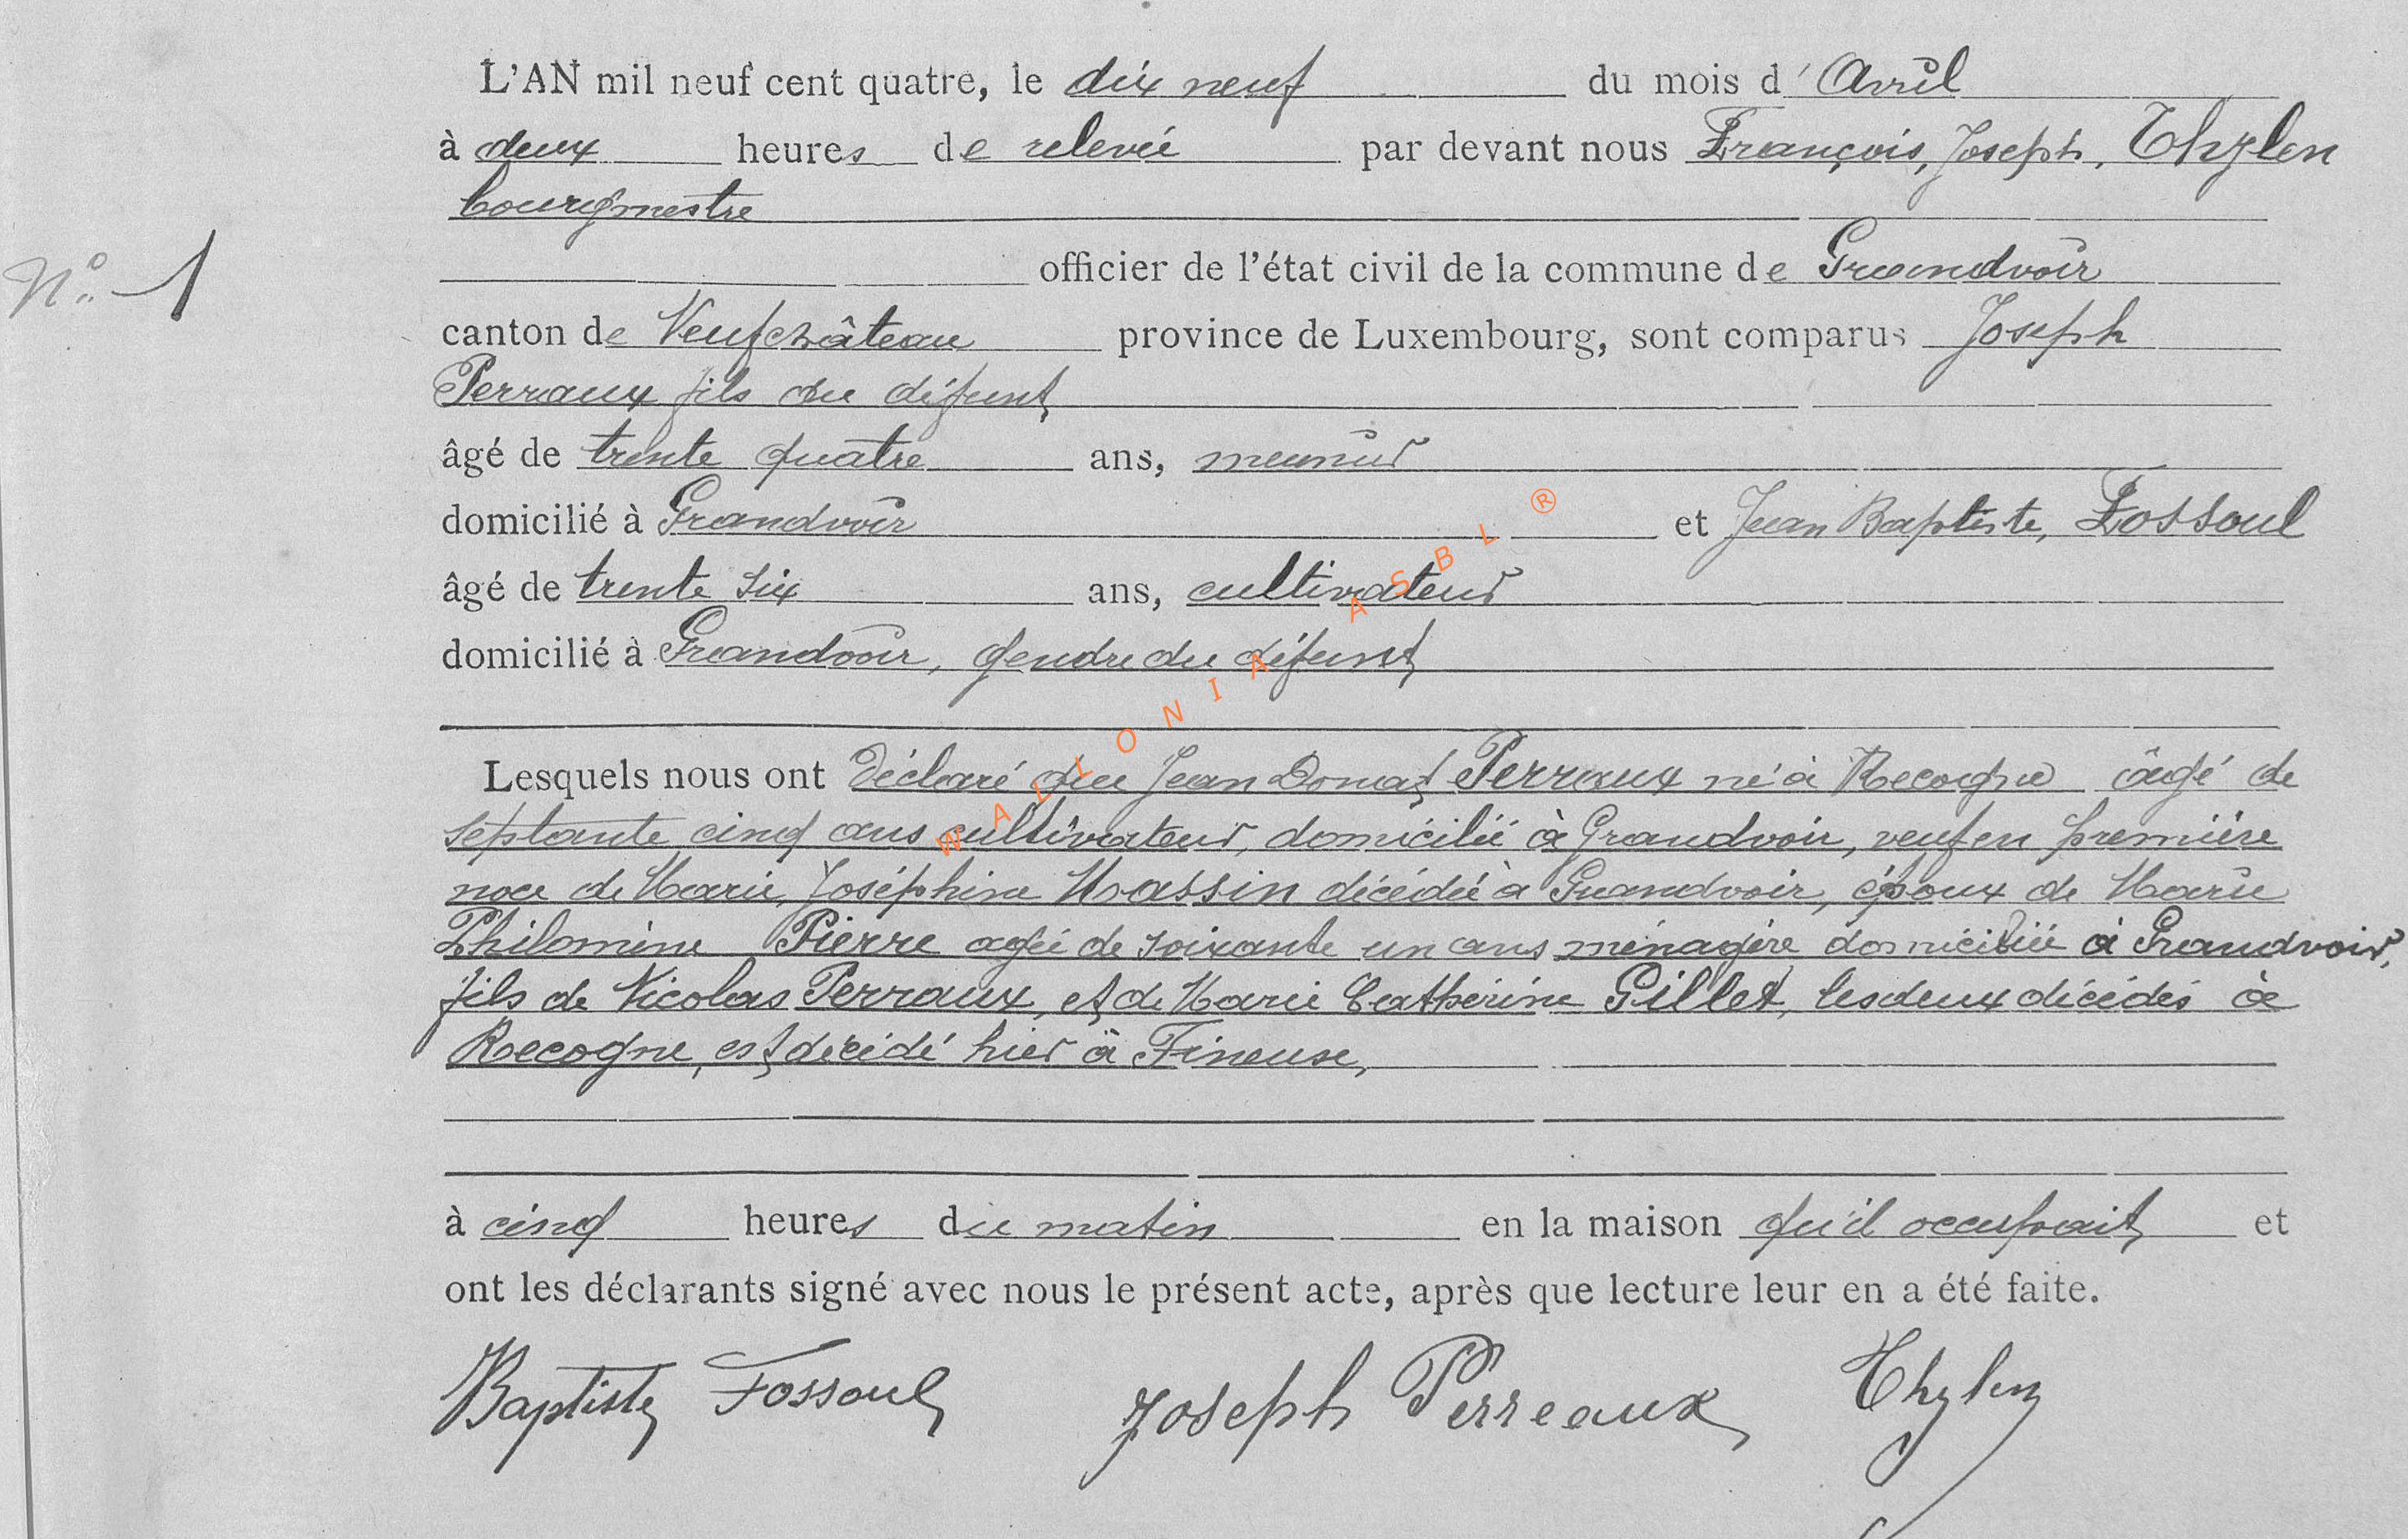 L'AN mil neuf cent quatre, le dix neuf du mois d'Avril
à deux heures de relevée par devant nous François, Joseph, Thylen
bourgmestre
N° 1
officier de l'état civil de la commune de Grandvoir
canton de Neufchâteau province de Luxembourg, sont comparus Joseph
Perraux fils du défunt
âgé de trente quatre ans, meunier
domicilié à Grandvoir et Jean Baptiste, Fossoul
âgé de trente six ans, cultivateur
domicilié à Grandvoir, gendre du défunt
Lesquels nous ont déclaré que Jean Donat Perraux né à Recogne âgé de
septante cinq ans cultivateur, domicilié à Grandvoir, veuf en première
noce de Marie, Joséphine Massin décédée à Grandvoir, époux de Marie
Philomène Pierre agée de soixante un ans ménagère domiciliée à Grandvoir,
fils de Nicolas Perraux, et de Marie Catherine Gillet, les deux décédés à
Recogne, est décédé hier à Fineuse,
à cinq heures du matin en la maison qu'il occupait et
ont les déclarants signé avec nous le présent acte, après que lecture leur en a été faite.
Baptiste Fossoul Joseph Perreaux Thylen
WALLONIA ASBL ®